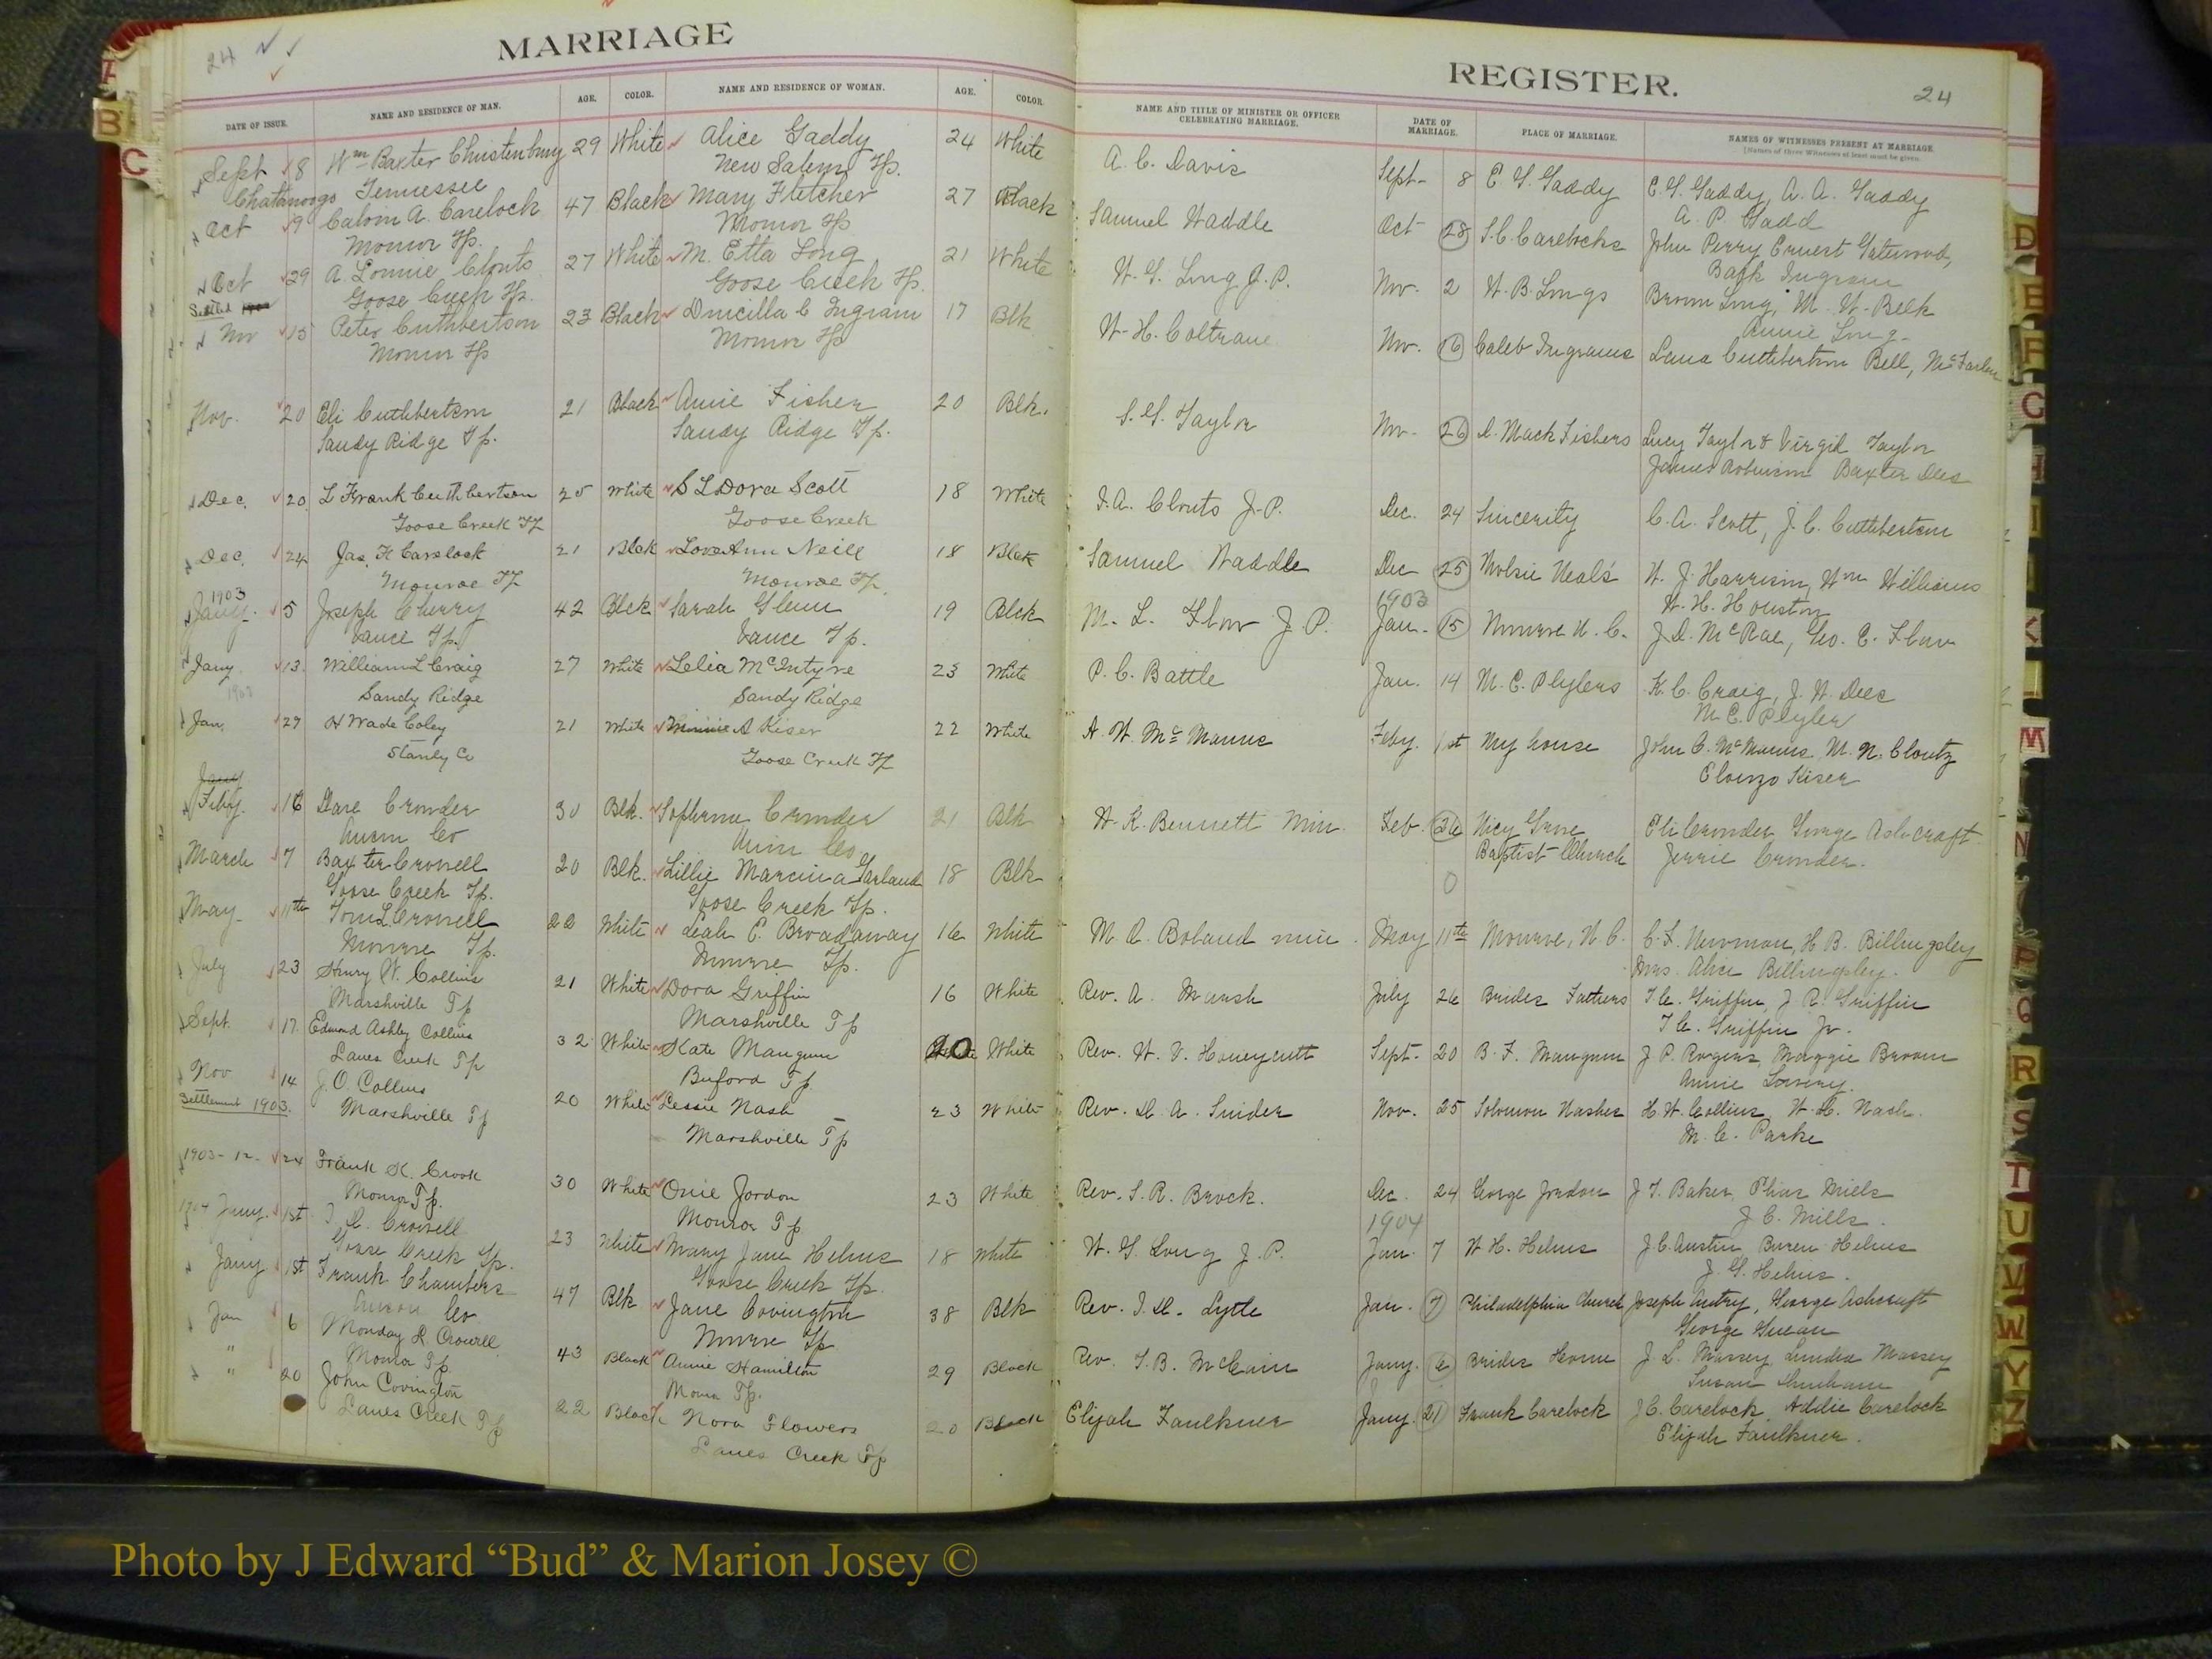 24
MARRIAGE
DATE OF ISSUE. NAME AND RESIDENCE OF MAN. AGE. COLOR. NAME AND RESIDENCE OF WOMAN. AGE. COLOR.
Sept 8 Wm Baxter Christenbury 29 White Alice Gaddy 24 White
Chattanooga Tennessee New Salem Tp.
Oct 9 Calvin A. Carelock 47 Black Mary Fletcher 27 Black
Monroe Tp. Monroe Tp
Oct 29 A. Lonnie Clonts 27 White M. Etta Long 21 White
Goose Creek Tp. Goose Creek Tp.
Settled
Nov 15 Peter Cuthbertson 23 Black Drucilla C Ingram 17 Blk
Monroe Tp Monroe Tp
Nov. 20 Eli Cuthbertson 21 Black Annie Fisher 20 Blk.
Sandy Ridge Tp. Sandy Ridge Tp.
Dec. 20 L Frank Cuthbertson 25 White S L Dora Scott 18 White
Goose Creek Tp Goose Creek
Dec. 24 Jas. H Carelock 21 Blck Love Ann Neill 18 Blck
Monroe Tp Monroe Tp.
1903
Jany. 5 Joseph Cherry 42 Blck Sarah Glenn 19 Blck
Vance Tp. Vance Tp.
Jany. 13. William L Craig 27 White Lelia McIntyre 23 White
1903 Sandy Ridge Sandy Ridge
Jan. 29 H Wade Coley 21 White Minnie A Kiser 22 White
Stanly Co Goose Creek Tp
Jany
Feby. 16 Dare Crowder 30 Blk. Sophronie Crowder 21 Blk
Anson Co Union Co
March 7 Baxter Crowell 20 Blk. Lillie Garland 18 Blk
Goose Creek Tp. Goose Creek Tp.
May 11th Tom L Crowell 22 White Leah E. Broadaway 16 White
Monroe Tp. Monroe Tp.
July 23 Henry W. Collins 21 White Dora Griffin 16 White
Marshville Tp Marshville Tp
Sept. 17. Edmond Ashley Collins 32 White Kate Mangum 20 White
Lanes Creek Tp Buford Tp
Nov 14 J. O. Collins 20 White Lessie Nash 23 White
Settlement 1903. Marshville Tp Marshville Tp
1903-12- 24 Frank K. Crook 30 White Onie Jordon 23 White
Monroe Tp. Monroe Tp
1904 Jany. 1st Crowell 23 White Mary Jane Helms 18 White
Goose Creek Tp. Goose Creek Tp.
Jany 1st Frank Chambers 47 Blk Jane Covington 38 Blk
Anson Co Monroe Tp
Jan 6 Monday R. Crowell 43 Black Annie Hamilton 29 Black
" Monroe Tp. Monroe Tp.
" 20 John Covington 22 Black Nora Flowers 20 Black
Lanes Creek Tp Lanes Creek Tp
REGISTER.
24
NAME AND TITLE OF MINISTER OR OFFICER CELEBRATING MARRIAGE. DATE OF MARRIAGE. PLACE OF MARRIAGE. NAMES OF WITNESSES PRESENT AT MARRIAGE
[Names of three Witnesses at least must be given.
A. C. Davis Sept- 8 E. G. Gaddy E. G. Gaddy, A. A. Gaddy
A. P. Gadd
Samuel Waddle Oct 28 S. C. Carelocks John Perry Ernest Gatewood,
Ingram
W. G. Long J. P. Nov. 2 W. B. Longs Brown Long, M. W. Belk
Annie Long
W. H. Coltrane Nov. 16 Caleb Ingrams Lana Cuthbertson Bell, McFarlen
S. G. Taylor Nov. 26 D. Mack Fishers Lucy Taylor & Virgil Taylor
James Robinson Baxter Dees
I. A. Clonts J. P. Dec. 24 Sincerity C. A. Scott, J. C. Cuthbertson
Samuel Waddle Dec 25 Molsie Neal's W. J. Harrison, Wm Williams
1903 W. H. Houston
M. L. Flow J. P. Jan. 15 Monroe N. C. J. D. McRae, Geo. E. Flow
P. C. Battle Jan. 14 M. C. Plylers K. C. Craig, J. W. Dees
M. C. Plyler
A. W. McManus Feby. 1st My house John C. McManus, M. N. Cloutz
Elonzo Kiser
W. K. Bennett Min. Feb. Nicy Grove Eli Crowder George Ashcraft
Baptist Church Jerrie Crowder.
0
M. A. Boland min. May 11th Monroe, N. C. C. F. Newman, H. B. Billingsley
Mrs. Alice Billingsley.
Rev. A. Marsh July 26 Brides Fathers T. C. Griffin, J. R. Griffin
T. C. Griffin Jr.
Rev. W. V. Honeycutt Sept. 20 B. F. Mangum J P. Rogers, Maggie Broom
Annie Lowery.
Rev. D. A. Snider Nov. 25 Solomon Nashes H. W. Collins, W. H. Nash.
M. C. Parke
Rev. S. R. Brock. Dec. 24 George Jordon J. T. Baker, Phiar Mills
1904 J. C. Mills.
W. G. Long J. P. Jan. 7 W. H. Helms J. C. Austin, Buren Helms
J. G. Helms.
Rev. I. D. Lytle Jan. 7 Philadelphia Church Joseph Autry, George Ashcraft
George
Rev. T. B. McCain Jany. 6 Brides Home J. L. Massey, Lundea Massey
Susan
Elijah Faulkner Jany. 21 Frank Carelock J. C. Carelock, Addie Carelock
Elijah Faulkner.
B
C
D
E
F
G
H
I
K
M
N
P
Q
R
S
T
U
V
W
Y
Z
Photo by J Edward “Bud” & Marion Josey ©